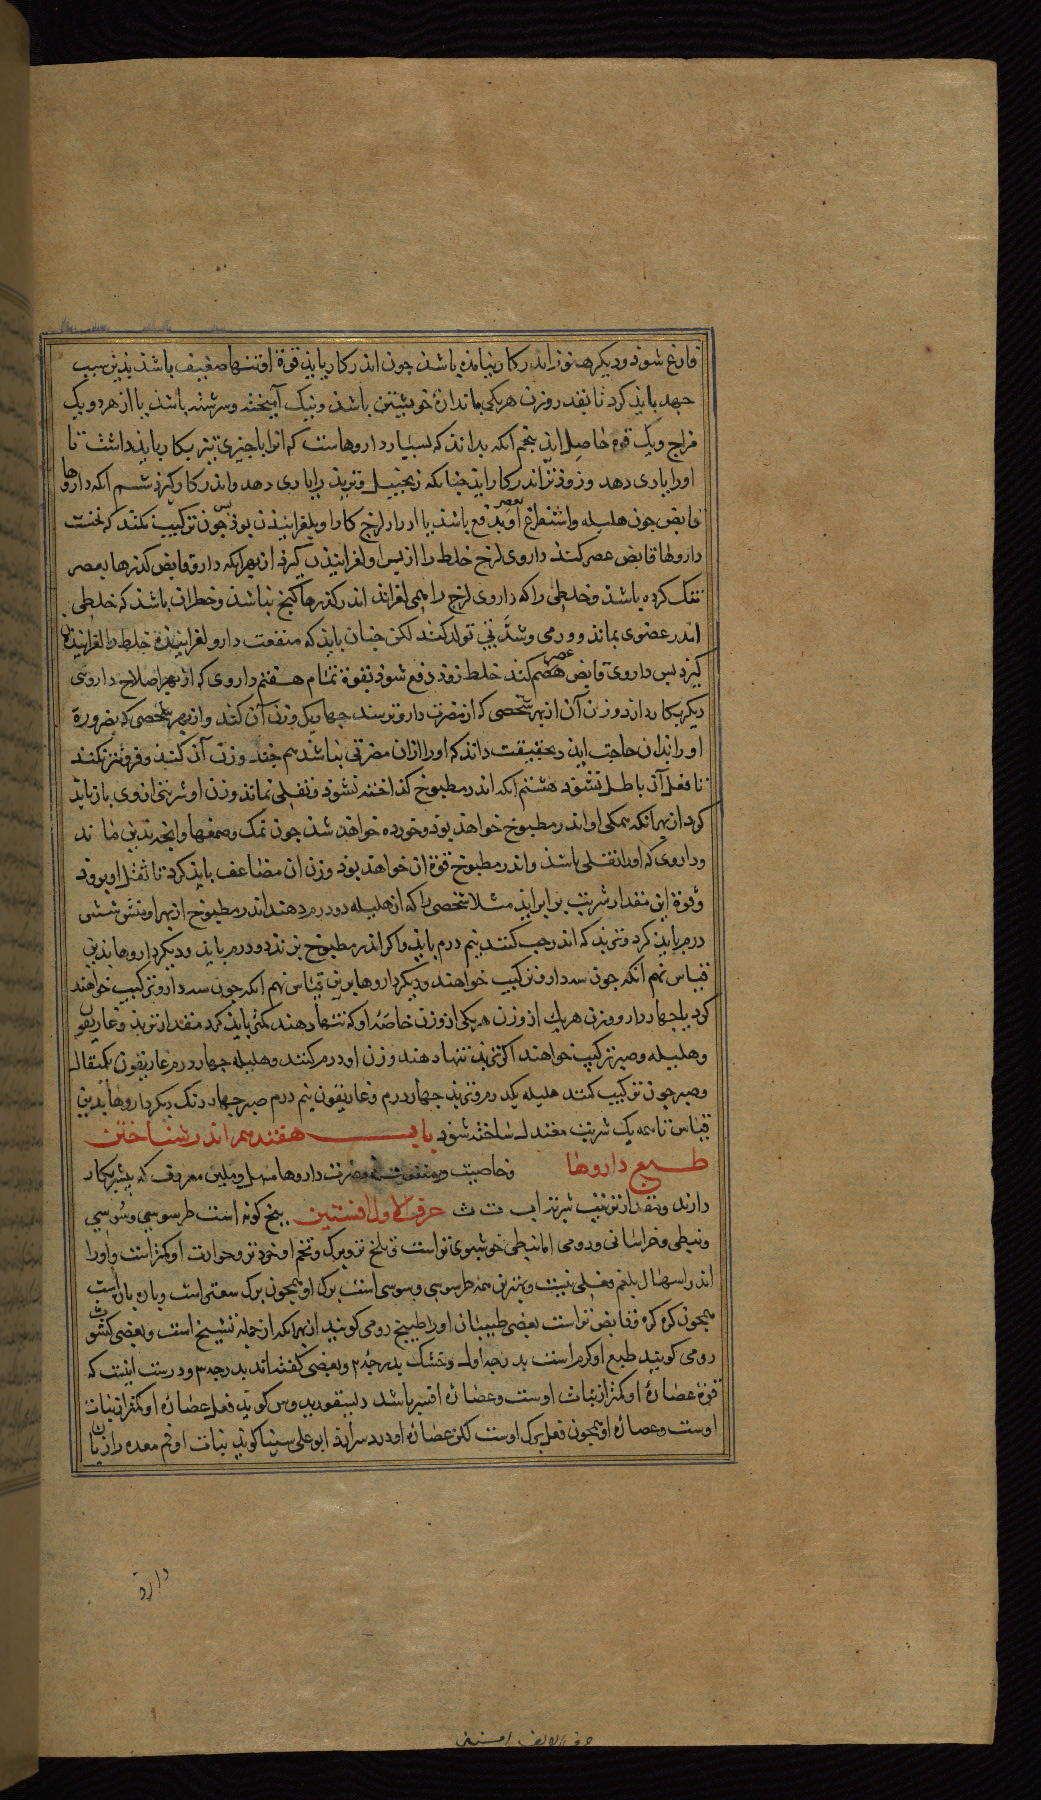 فارغ شوذ و دیکر هنوز اندر کار نیامده باشذ چون اندر کار یایذ قوة او تنها ضعیف باشذ بذین سبب
جهد بایذ کرد تا بقدر و وزن هر یکی ماندان خویشتن باشذ و نیک آمیخته و سرشته باشذ یا از هر دو یک
مزاج و یک قوه حاصل ایذ پنجم انکه بدانذ که بسیار داروهاست که انرا با جیزی تیز بکار بایذ داشت تا
او را یاری دهد و زوذتر اندر کار ایذ جنانکه زنجبیل و تربذ را یاری دهد و اندر کار کیرذ ششم انکه داروها
قابض چون هلیله و استفراغ او بعصر و دفع باشذ یا ادرار لزج کار او بلغزانیذن بوذ پس چون ترکیب کنند که نخست
داروها قابض عصر کنند داروی لزج خلط را از پس او لغزانیذن کیرذ از بهر انکه دارو قابض کذرها بعصر
تنک کرده باشذ و خلطی را که داروی لزج را همی لغزاند اندر کذرها کنج نباشذ و خطر ان باشذ که خلطی
اندر عضوی بماند و ورمی و شدتی تولد کند لکن جنان بایذ که منفعت دارو لغزانیذه خلط را لغزانیذن
کیرذ پس داروی قابض هضم عصر کند خلط زوذ دفع شوذ بقوة تمام هفتم داروی که از بهر اصلاح داروی
دیکر بکار دارند وزن آن از بهر شخصی که از مضرت دارو ترسند چهار یک وزن آن کنند و از بهر شخصی که بضرورة
او را بذان حاجت ایذ و بحقیقت داند که او را ازان مضرتی نباشذ هم جند وزن آن کنند و فروتر نکنند
تا فعل آن باطل نشوذ هشتم انکه اندر مطبوخ کذاخته نشوذ و ثفلی نماند وزن او شربتی ازوی باز بایذ
کرد از بهر انکه همکی او اندر مطبوخ خواهذ بوذ و خورده خواهذ شذ چون نمک و صمغها و انجه بذین ماند
و داروی که او را ثفلی باشذ و اندر مطبوخ قوة ان خواهذ بوذ وزن ان مضاعف بایذ کرد تا ثقل او بروذ
و قوة این مقدار شربت بر ایذ مثلا شخصی را که از هلیله دو درم دهند اندر مطبوخ از بهر او شش
درم بایذ کرد و تربذ که اندر حب کنند نیم درم بایذ و اکر اندر مطبوخ بزنند دو درم بایذ و دیکر داروها بذین
قیاس نهم انکه چون سه دارو ترکیب خواهند و دیکر داروها برین قیاس نهم انکه چون سه دارو ترکیب خواهند
کرد یا چهار دارو وزن هر یک از وزن هر یکی از وزن خاصه او که تنها دهند کمتر بایذ کرد مقدار تربذ و غاریقون
و هلیله و صبر ترکیب خواهند اکر تربذ تنها دهند وزن او درم کنند و هلیله چهار درم غاریقون یکمثقال
و صبر چون ترکیب کنند هلیله یکدرم و تربذ چهار درم و غاریقون نیم درم صبر چهار دنک دیکر داروها بذین
قیاس تا همه یک شربت معتدل ساخته شوذ باب هفتدهم اندر شناختن
طبع داروها و خاصیت و منفعت و مضرت داروها مسهل و ملین معروف که بیشتر بکار
دارند و بترتیب ا ب ت ث حرف الاول افسنتین پنج کونه است طرسوسی و سوسی
و نبطی و خراسانی و رومی اما نبطی خوشبوی تراست و تلخ تر و برک و تخم او خردتر و حرارت او کمتر است و او را
اندر اسهال بلغم فعلی نیست و بهترین همه طرسوسی و سوسی است برک او همچون برک سعتر است
همچون کره کره و قابض تراست بعضی طبیبان او را شیح رومی کویند از بهر انکه از جمله شیح است و بعضی کشوث
رومی کویند طبع او کرم است بدرجه اول و خشک بدرجه ۲ و بعضی کفته اند بدرجه ۳ و درست اینست که
قوة عصارة او کمتر از نبات اوست و عصاره اقسر باشد دیسقوریدوس کوید فعل عصارة او کمتر از نبات
اوست و عصاره او همچون فعل برک اوست لکن عصاره او درد سر آرد ابوعلی سینا کوید نبات او فم معده را زیان
دارد
حرف الالف افسنتین